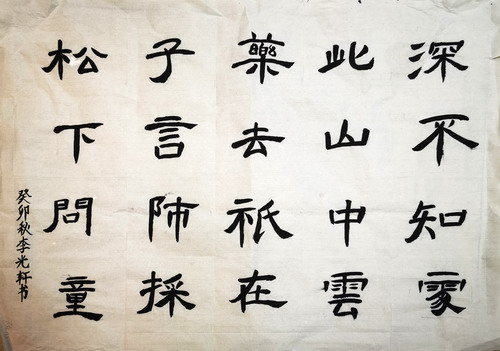 松下問童
子言師採
藥去祇在
此山中雲
深不知處
癸卯秋李光軒书